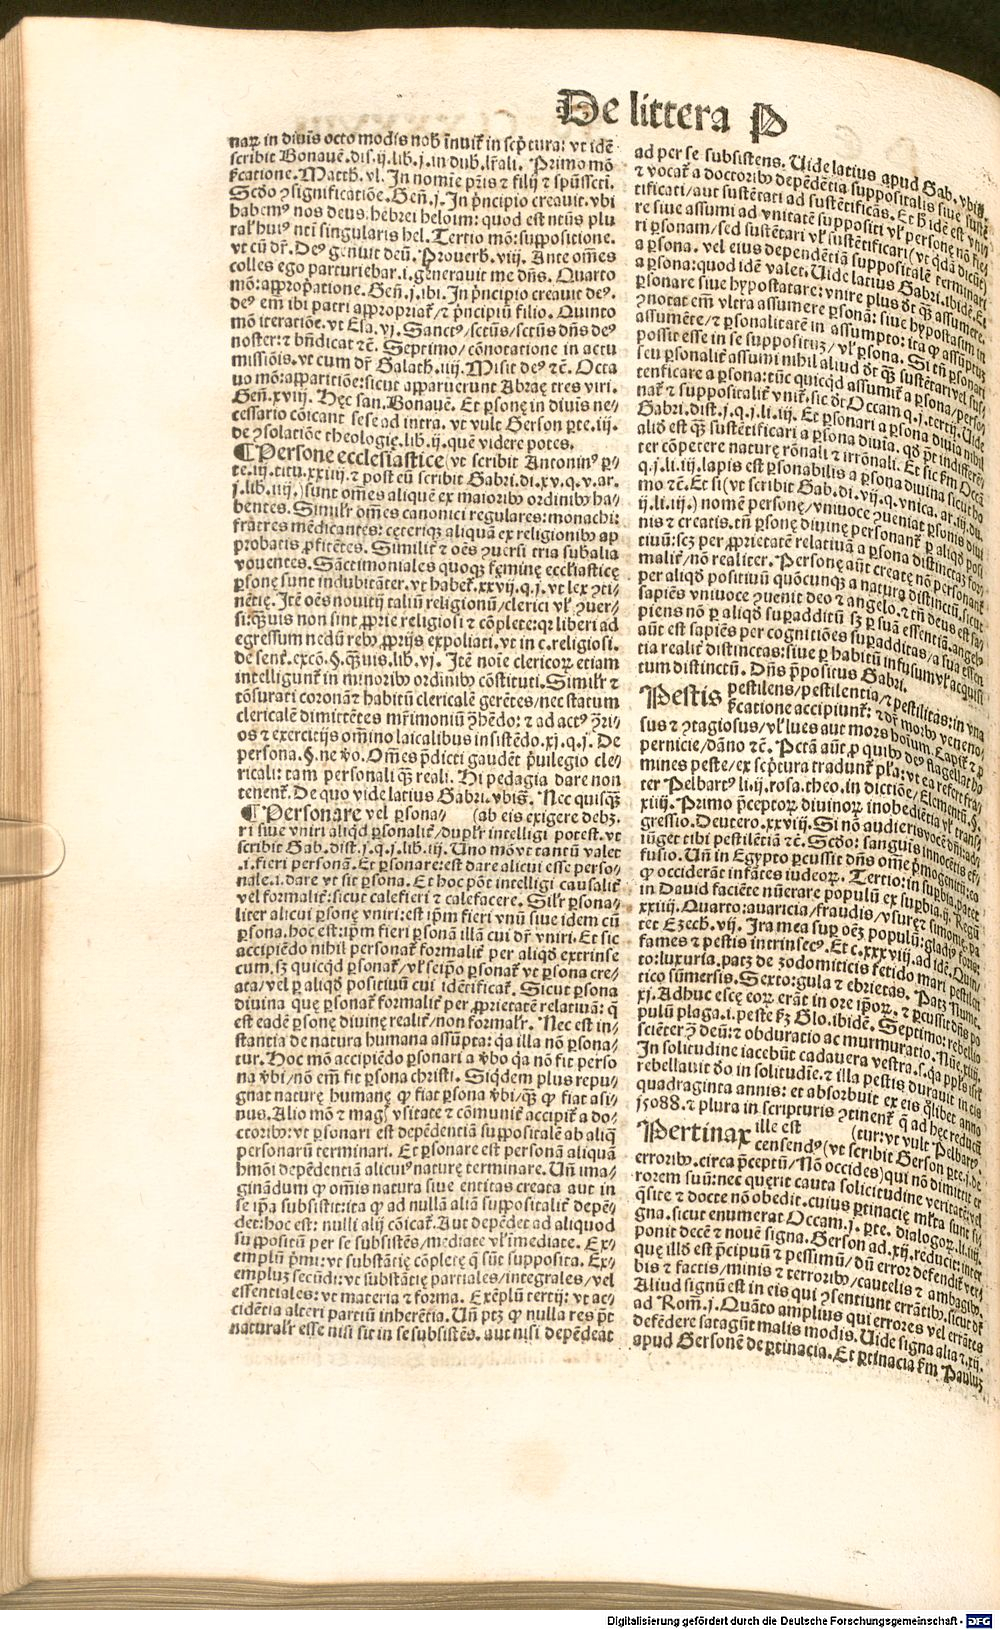 De littera P
narꝝ in diuīs octo modis nob̄ īnuit̄ in sc̄ptura: vt idē
scribit Bonauē.dis.ij.lib.j.in dub.lr̄ali. Primo mō
Matth. vl. In nomīe pr̄is ⁊ filij ⁊ spūsscti.
Scd̄o ꝯsignificatiōe. Gen̄.j. In pn̄cipio creauit. vbi
habemꝰ nos deus. hebrei heloim: quod est ntūs plu
ral̄ huiꝰ nt̄i singularis hel. Tertio mō: suppositione.
vt cū dr̄. Deꝰ genuit deū. Prouerb. viij. Ante om̄es
colles ego parturiebar.i.generauit me dn̄s. Quarto
mō: app̄ropatione. Gen̄.j.ibi. In pn̄cipio creauit deꝰ.
deꝰ em̄ ibi patri appropriat̄/⁊ pn̄cipiū filio. Quinto
mō iteratiōe. vt Esa. vj. Sanctꝰ/sctūs/sctūs dn̄s deꝰ
noster: ⁊ bn̄dicat ⁊c̄. Septimo/cōnotatione in actu
missiōis. vt cum dr̄ Galath. iiij. Misit deꝰ ⁊c̄. Octa
uo mō: apparitiōe: sicut apparuerunt Abraę tres viri.
Gen̄.xviij. Hęc san. Bonauē. Et ꝑsonę in diuīs ne-
cessario cōicant sese ad intra. vt vult Gerson ꝑte.iij.
de ꝯsolatiōe theologię.lib.ij.quē videre potes.
¶ Persone ecclesiastice (vt scribit Antoninꝰ ꝑ-
te.iij.titu.xxiiij. ⁊ post eū scribit Gabri.di.xv.q.v.ar.
j.lib.iiij.) sunt om̄es aliquē ex maioribꝰ ordinibꝰ ha-
bentes. Similr̄ om̄es canonici regulares: monachi:
fratres mēdicantes: ceteriqꝫ aliquā ex religionibꝰ ap
probatis ꝓfitētes. Similit̄ ⁊ oēs ꝯuersi tria subalia
vouentes. Sāctimoniales quoqꝫ fęminę ecclesiasticę
ꝑsonę sunt indubitāter. vt habet̄.xxvij.q.j. vt lex ꝯti-
nētię. Itē oēs nouitij taliū religionū/clerici vl̄ ꝯuer-
si: qͣuis non sint ꝓprie religiosi ⁊ cōplete: qꝛ liberi ad
egressum nedū rebꝰ ꝓprijs expoliati. vt in c. religiosi.
de sent̄. excō.§.qͣuis.lib.vj. Itē noīe clericoꝝ etiam
intelligunt̄ in minoribꝰ ordinibꝰ cōstituti. Similr̄ ⁊
tōsurati coronā ⁊ habitū clericalē gerētes/nec statum
clericalē dimittētes mr̄imoniū ꝯhēdo: ⁊ ad actꝰ ꝯri-
os ⁊ exercitijs om̄ino laicalibus insistēdo.xj.q.j. De
persona.§.ne v̄o. Om̄es p̄dicti gaudēt p̄uilegio cle-
ricali: tam personali qͣꝫ reali. Hi pedagia dare non
tenent̄. De quo vide latius Gabri. vbi sͣ. Nec quisqͣꝫ
¶ Personare vel ꝑsona- (ab eis exigere debꝫ.
ri siue vniri aliqd̄ ꝑsonalit̄/duplr̄ intelligi potest. vt
scribit Gab. dist.j.q.j.lib.iij. Uno mō vt tantū valet
.i.fieri personā. Et ꝑsonare: est dare alicui esse perso-
nale.i.dare vt sit ꝑsona. Et hoc pōt intelligi causalit̄
vel formalit̄: sicut calefieri ⁊ calefacere. Silr̄ ꝑsona-
liter alicui ꝑsonę vniri: est ip̄m fieri vnū siue idem cū
ꝑsona. hoc est: ip̄m fieri ꝑsonā illā cui dr̄ vniri. Et sic
accipiēdo nihil personat̄ formalit̄ per aliqd̄ extrinse
cum. sꝫ quicqd̄ ꝑsonat̄/vl̄ seip̄o ꝑsonat̄ vt ꝑsona cre-
ata/vel ꝑ aliqd̄ positiuū cui idētificat̄. Sicut ꝑsona
diuina quę ꝑsonat̄ formalit̄ per ꝓprietatē relatiuā: q̄
est eadē ꝑsonę diuinę realit̄/non formalr̄. Nec est in-
stantia de natura humana assūpta: qꝛ illa nō ꝑsona-
tur. Hoc mō accipiēdo ꝑsonari a v̄bo qꝛ nō fit perso
na v̄bi/nō em̄ fit ꝑsona christi. Siqdem plus repu-
gnat naturę humanę ꝙ fiat ꝑsona v̄bi/qͣꝫ ꝙ fiat asi-
nus. Alio mō ⁊ magꝭ vsitate ⁊ cōmunit̄ accipit̄ a do-
ctoribꝰ: vt ꝑsonari est depēdentiā suppositalē ab aliq̄
personarū terminari. Et ꝑsonare est personā aliquā
hmōi depēdentiā alicuiꝰ naturę terminare. Un̄ ima-
ginādum ꝙ om̄is natura siue entitas creata aut in
se ip̄a subsistit: ita ꝙ ad nullā aliā suppositalit̄ depē-
det: hoc est: nulli alij cōicat̄. Aut depēdet ad aliquod
suppositū per se subsistēs/mediate vl̄ īmediate. Ex-
emplū p̄mi: vt substātię cōpletę q̄ sūt supposita. Ex-
empluꝫ secūdi: vt substātię partiales/integrales/vel
essentiales: vt materia ⁊ forma. Exēplū tertij: vt ac-
cidētia alteri partiū inherētia. Un̄ ptꝫ ꝙ nulla res pt̄
naturalr̄ esse nisi sit in se subsistēs. aut nisi depēdeat
ad per se subsistens. Uide latius apud Gab. vbi sͣ.
⁊ vocat̄ a doctoribꝰ depēdētia suppositalis siue sustē
tificati/aut sustētati ad sustētificās. Et h̄ idē est vniri
re siue assumi ad vnitatē suppositi vl̄ personę nō fie-
ri ꝑsonam/sed sustētari vl̄ sustētificari (vt qdā dicūt)
a ꝑsona. vel eius dependētiā suppositalē terminari
a ꝑsona: quod idē valet. Uide latius Gabri. ibidē. Et
ꝑsonare siue hypostatare: vnire plus dt̄ qͣꝫ assumere.
ꝯnotat em̄ vltra assumere ꝑsonā: siue hypostasim in
assumēte/⁊ ꝑsonalitatē in assumpto: ita ꝙ assūptuꝫ
possit esse in se supposituꝫ/vl̄ ꝑsona. Si tn̄ ꝑsonari
seu ꝑsonalit̄ assumi nihil aliud dt̄ qͣꝫ sustētari vel sus-
tenficare a ꝑsona: tūc quicqd̄ assumit̄ a ꝑsona/perso
nat̄ ⁊ suppositalit̄ vnit̄. sic dt̄ Occam q.j.tertij. Uide
Gabri. dist.j.q.j.li.iij. Et ꝑsonari a ꝑsona diuīa nihil
aliud est qͣꝫ sustētificari a ꝑsona diuīa. qd̄ pt̄ indifferē
ter cōpetere naturę rōnali ⁊ irrōnali. Et sic sm̄ Occā
q.j.li.iij. lapis est ꝑsonabilis a ꝑsona diuina sicut ho
mo ⁊c̄. Et si (vt scribit Gab. di. vij.q.vnica. ar.iij.du.
ij.li.iij.) nomē personę/vniuoce ꝯueniat ꝑsonis diui
nis ⁊ creatis. tn̄ ꝑsonę diuinę personant̄ ꝑ aliqd̄ posi
tiuū: scꝫ per ꝓprietatē relatiuā a ꝑsona distinctaꝫ for
malit̄/nō realiter. Personę aūt creatę nō personant̄
per aliqd̄ positiuū quōcunqꝫ a natura distinctū. sicut
sapiēs vniuoce ꝯuenit deo ⁊ angelo. ⁊ tn̄ deus est sa-
piens nō ꝑ aliqd̄ supadditū sꝫ ꝑ suā essentiā. angelꝰ
aūt est sapiēs per cognitiōes supadditas/a sua essen
tia realit̄ distinctas: siue ꝑ habitū infusum vl̄ acquisi
tum distinctū. Dn̄s p̄positus Gabri.
Pestis pestilens/pestilentia/⁊ pestilitas: in vna
accipiunt̄: ⁊ dr̄ morbꝰ veneno-
sus ⁊ ꝯtagiosus/vl̄ lues aut mors hoīum. Capit̄ ⁊ ꝓ
pernicie/dāno ⁊c̄. Pctā aūt ꝓ quibꝰ deꝰ flagellat ho
mines peste/ex sc̄ptura tradunt̄ pl̄a: vt ea refert fra-
ter Pelbartꝰ li.ij.rosa.theo. in dictiōe/Elementū.§.
xiiij. Primo p̄ceptoꝝ diuinoꝝ inobediētia vl̄ trans-
gressio. Deutero.xxviij. Si nō audieris vocē dn̄i: ad-
iūget tibi pestilētiā ⁊c̄. Scd̄o: sanguis innocētis ef-
fusio. Un̄ in Egypto percussit dn̄s om̄e p̄mogenitū: eo
ꝙ occiderāt infātes iudeoꝝ. Tertio: in supbia. patet
in Dauid faciēte nūerare populū ex supbia.ij. Regū
xxiiij. Quarto: auaricia/fraudis/vsurę ⁊ simonię. pa
tet Ezech. vij. Ira mea sup oēꝫ populū: gladꝰ foris:
fames ⁊ pestis intrinsecꝰ. Et c.xxxviij.ad idē. Quin-
to: luxuria. patꝫ de zodomiticis fœtido mari pestilen
tico sūmersis. Sexto: gula ⁊ ebrietas. Patꝫ Nume.
xj. Adhuc escę eoꝝ erāt in ore ip̄oꝝ. ⁊ ꝑcussit dn̄s po
pulū plaga.i.peste sm̄ Glo. ibidē. Septimo: rebellio
sciēter ꝯ̄ deū: ⁊ obduratio ac murmuratio. Nūe.xiiij.
In solitudine iacebūt cadauera vestra.s.qꝛ pp̄ls isr̄l
rebellauit deo in solitudīe. ⁊ illa pestis durauit in eis
quadraginta annis: et absorbuit ex eis qͣlibet anno
15088. ⁊ plura in scripturis ꝯtinent̄ q̄ ad hęc reducūt
Pertinax ille est (tur: vt vult Pelbartꝰ.
censendꝰ (vt scribit Gerson ꝑte.j.de
erroribꝰ. circa p̄ceptū/Nō occides) qui nō dimittit er
rorem suū: nec quęrit cauta solicitudine veritatē/vel
qͣsite ⁊ docte nō obedit. cuius ꝑtinacię ml̄ta sunt si-
gna. sicut enumerat Occam.j. ꝑte. dialogoꝝ. li.iiij.
ponit decē ⁊ nouē signa. Gerson ad.xij.reducit: inter
quę illud est p̄cipuū ⁊ pessimū/dū error defendit̄ ver-
bis ⁊ factis/minis ⁊ terroribꝰ/cautelis ⁊ ambagibꝰ.
Aliud signū est in eis qui ꝯsentiunt errātibꝰ. sicut dt̄
ad Rom̄.j. Quāto amplius qui errores vel errātes
defēdere satagūt malis modis. Uide signa alia ⁊.xij.
apud Gersonē de ꝑtinacia. Et ꝑtinacia sm̄ Pauluꝫ
Digitalisierung gefördert durch die Deutsche Forschungsgemeinschaft - DFG